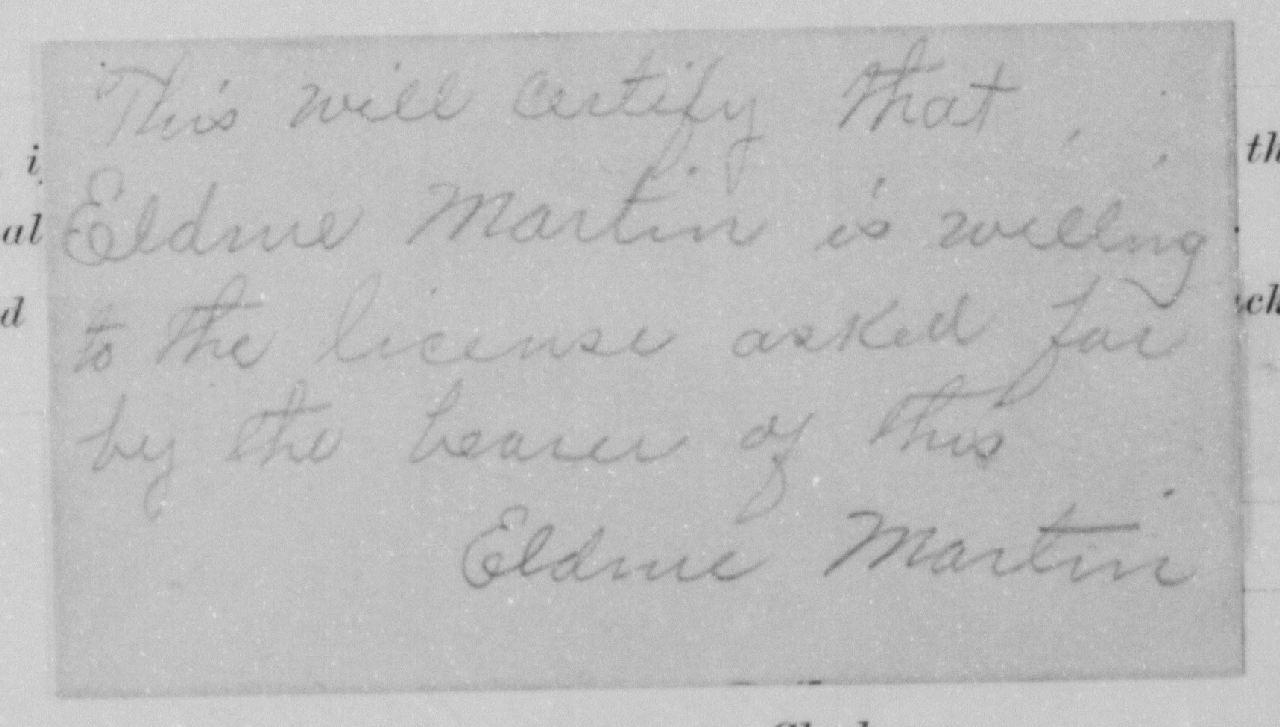 This will certify that
i th
Eldnie Martin is willing
al
to the license asked for
d ch
by the bearer of this
Eldnie Martin